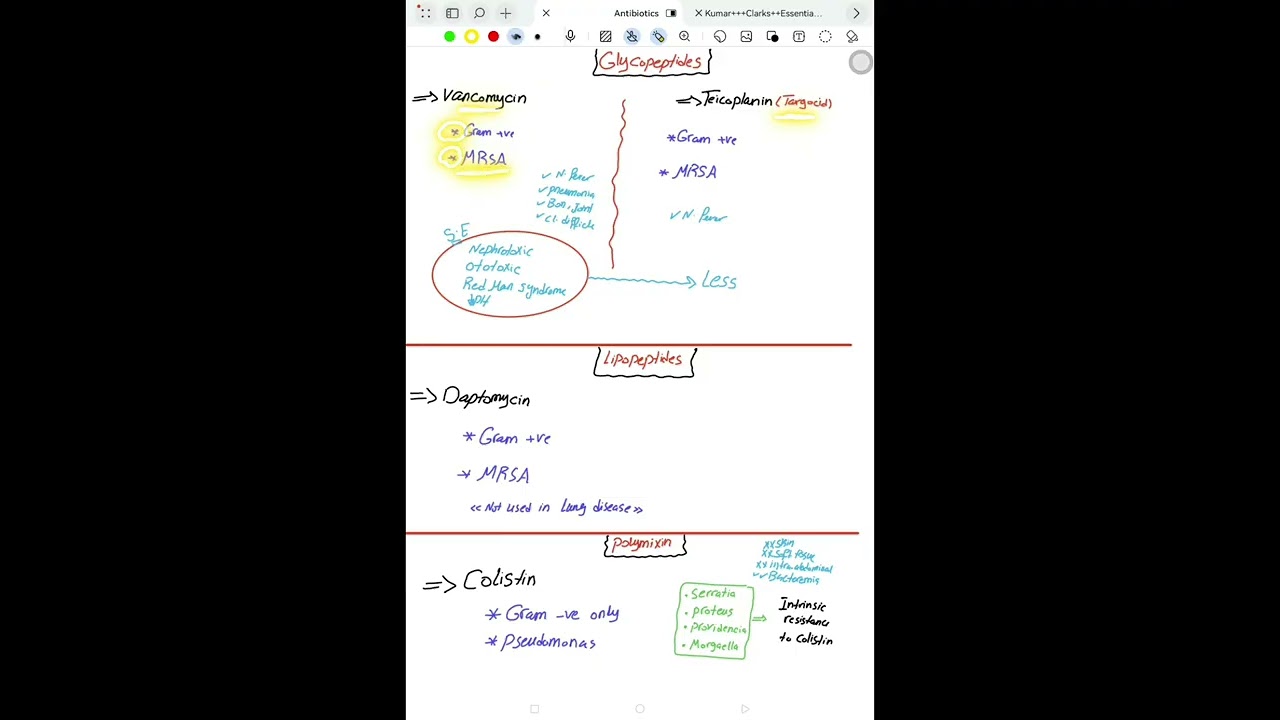 Antibiotics
Kumar+++Clarks++Essentia...
Glycopeptides
=> Vancomycin
* Gram +ve
* MRSA
✓ N. Fever
✓ pneumonia
✓ Bon, Joint
✓ cl. difficle
S.E
Nephrotoxic
Ototoxic
Red Man syndrome
=> Teicoplanin (Targocid)
* Gram +ve
* MRSA
✓ N. Fever
Less
Lipopeptides
=> Daptomycin
* Gram +ve
* MRSA
<< Not used in Lung disease >>
Polymixin
=> Colistin
* Gram -ve only
* Pseudomonas
xx skin
xx soft tissue
xx intraabdominal
✓✓ Bacteremia
• Serratia
• proteus
• providencia
• Morgaella
=> Intrinsic
resistance
to Colistin